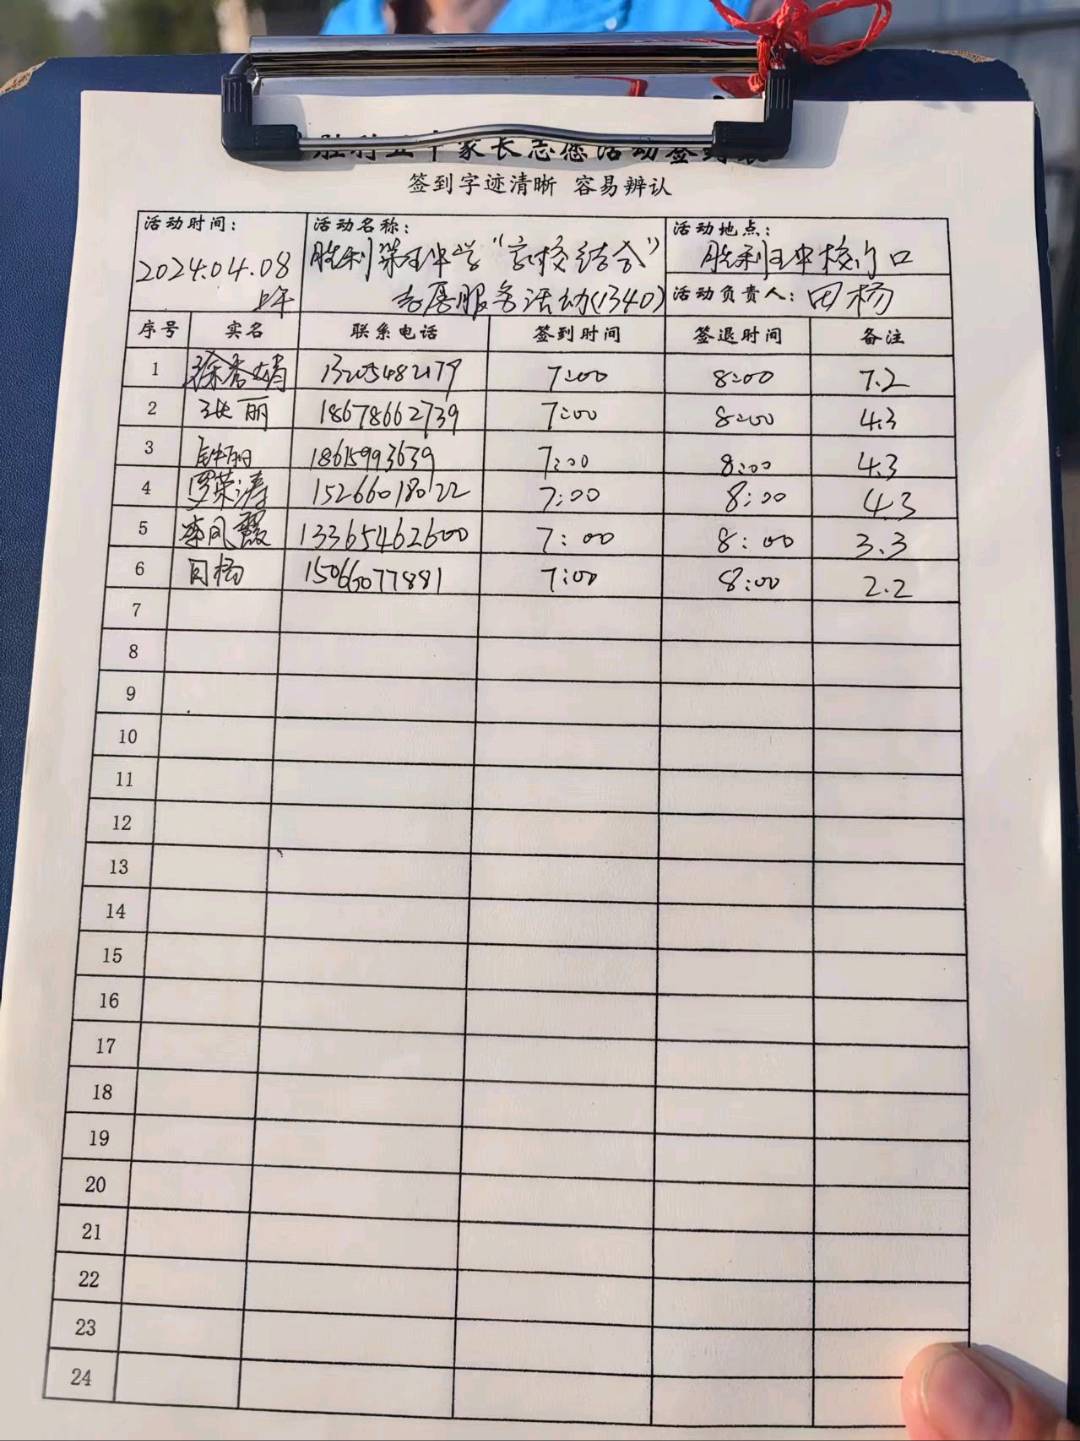 胜利五中家长志愿活动签到表
签到字迹清晰 容易辨认
活动时间: 活动名称: 活动地点:
2024.04.08 胜利第五中学“家校结合” 胜利五中校门口
上午 志愿服务活动(1340) 活动负责人: 田杨
序号 实名 联系电话 签到时间 签退时间 备注
1 徐秀娟 13205482179 7:00 8:00 7.2
2 张丽 18678662739 7:00 8:00 4.3
3 钟丽 18615993639 7:00 8:00 4.3
4 罗荣涛 15266018022 7:00 8:00 4.3
5 李凤霞 13365462600 7:00 8:00 3.3
6 田杨 15066077881 7:00 8:00 2.2
7
8
9
10
11
12
13
14
15
16
17
18
19
20
21
22
23
24